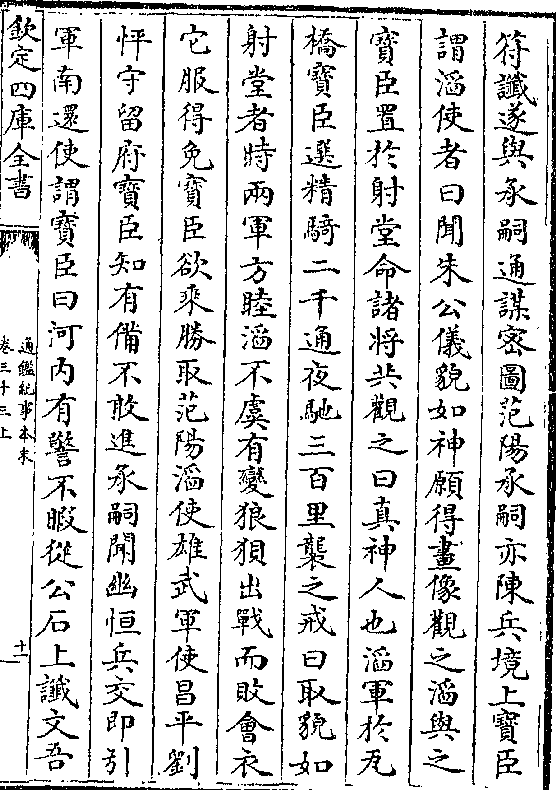 符讖遂與承嗣通謀密圖范陽承嗣亦陳兵境上寶臣
謂滔使者曰聞朱公儀貌如神願得畫像觀之滔與之
寶臣置於射堂命諸將共觀之曰真神人也滔軍於瓦
橋寶臣選精騎二千通夜馳三百里襲之戒曰取貌如
射堂者時兩軍方睦滔不虞有變狼狽出戰而敗會衣
它服得免寶臣欲乘勝取范陽滔使雄武軍使昌平劉
怦守留府寶臣知有備不敢進承嗣聞幽恒兵交即引
軍南還使謂寶臣曰河内有警不暇從公石上讖文吾
欽定四庫全書
通鑑紀事本末
卷三十三上
十一